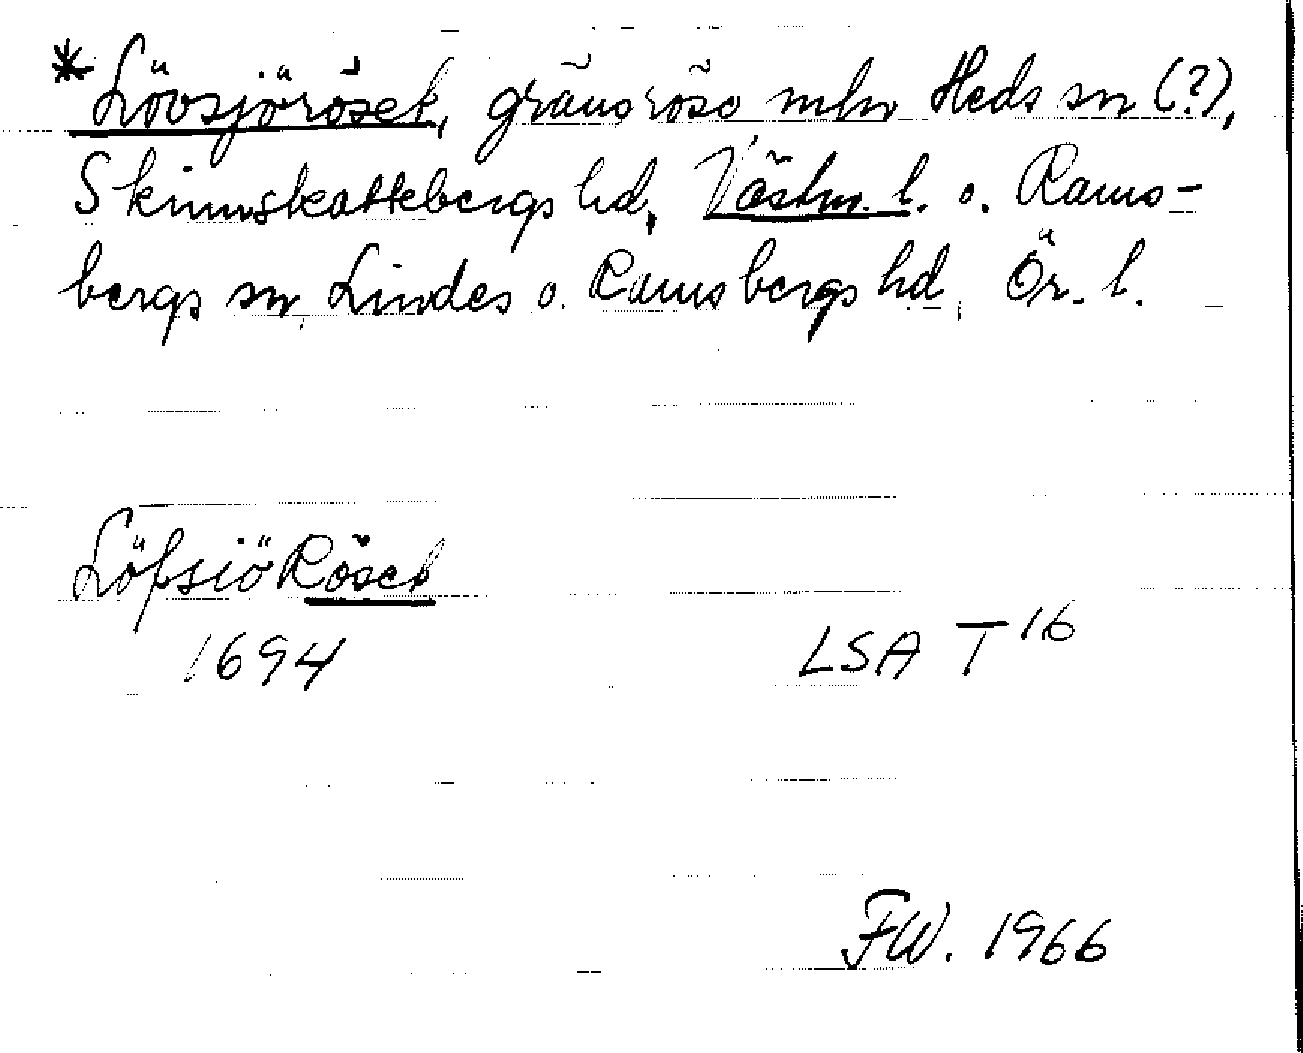 *Lövsjöröset, gränsröse mln Heds sn (?),
Skinnskattebergs hd, Västm. l. o. Rams-
bergs sn, Lindes o. Ramsbergs hd, Ör. l.
Löfsiö Röset
1694 LSA T 16
FW. 1966